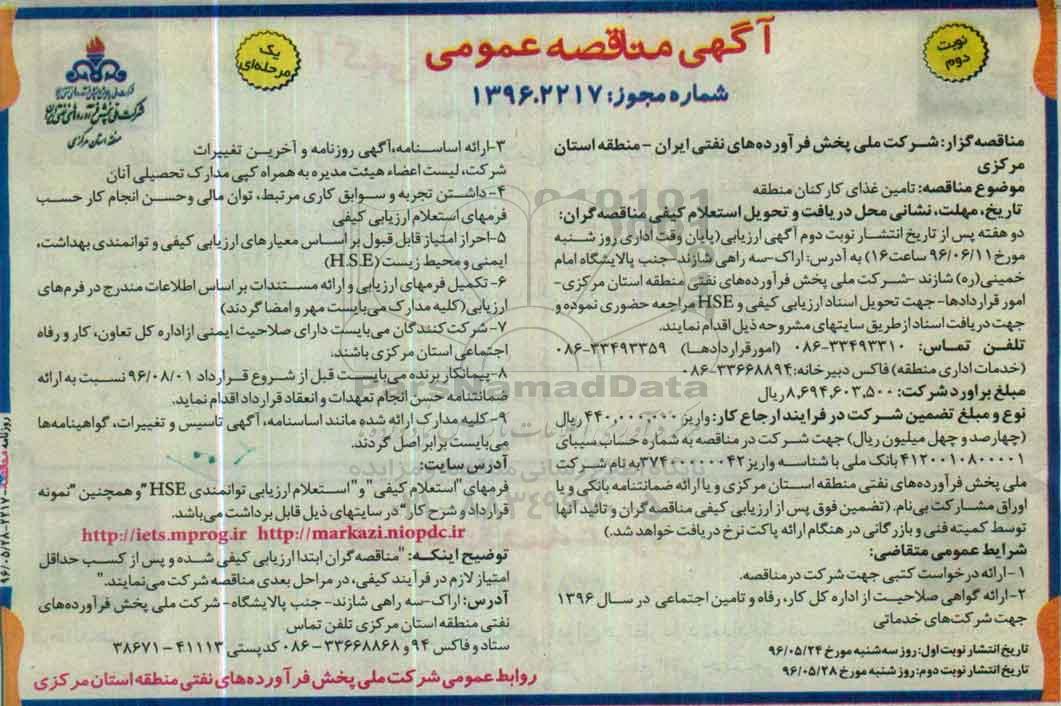 آگهی مناقصه عمومی
شماره مجوز: ۱۳۹۶.۲۲۱۷
نوبت دوم
یک مرحله‌ای
شرکت ملی پخش فرآورده‌های نفتی ایران
منطقه استان مرکزی
مناقصه‌گزار: شرکت ملی پخش فرآورده‌های نفتی ایران - منطقه استان
مرکزی
موضوع مناقصه: تامین غذای کارکنان منطقه
تاریخ، مهلت، نشانی محل دریافت و تحویل استعلام کیفی مناقصه‌گران:
دو هفته پس از تاریخ انتشار نوبت دوم آگهی ارزیابی(پایان وقت اداری روز شنبه
مورخ ۹۶/۰۶/۱۱ ساعت۱۶) به آدرس: اراک-سه راهی شازند-جنب پالایشگاه امام
خمینی(ره) شازند -شرکت ملی پخش فرآورده‌های نفتی منطقه استان مرکزی-
امور قراردادها- جهت تحویل اسناد ارزیابی کیفی و HSE مراجعه حضوری نموده و
جهت دریافت اسناد از طریق سایتهای مشروحه ذیل اقدام نمایند.
تلفن تماس: ۳۳۴۹۳۳۱۰-۰۸۶ (امورقراردادها) ۳۳۴۹۳۳۵۹-۰۸۶
(خدمات اداری منطقه) فاکس دبیرخانه: ۳۳۶۶۸۸۹۴-۰۸۶
مبلغ براورد شرکت: ۸,۶۹۴,۶۰۳,۵۰۰ ریال
نوع و مبلغ تضمین شرکت در فرایند ارجاع کار: واریز ۴۴۰,۰۰۰,۰۰۰ ریال
(چهارصد و چهل میلیون ریال) جهت شرکت در مناقصه به شماره حساب سیبای
۴۱۲۰۰۱۰۸۰۰۰۰۱ بانک ملی با شناسه واریز به نام شرکت
ملی پخش فرآورده‌های نفتی منطقه استان مرکزی و یا ارائه ضمانتنامه بانکی و یا
اوراق مشارکت بی‌نام. (تضمین فوق پس از ارزیابی کیفی مناقصه گران و تائید آنها
توسط کمیته فنی و بازرگانی در هنگام ارائه پاکت نرخ دریافت خواهد شد.)
شرایط عمومی متقاضی:
۱-ارائه درخواست کتبی جهت شرکت در مناقصه.
۲-ارائه گواهی صلاحیت از اداره کل کار، رفاه و تامین اجتماعی در سال ۱۳۹۶
جهت شرکت‌های خدماتی
تاریخ انتشار نوبت اول: روز سه‌شنبه مورخ ۹۶/۰۵/۲۴
تاریخ انتشار نوبت دوم: روز شنبه مورخ ۹۶/۰۵/۲۸
۳-ارائه اساسنامه،آگهی روزنامه و آخرین تغییرات
شرکت، لیست اعضاء هیئت مدیره به همراه کپی مدارک تحصیلی آنان
۴-داشتن تجربه و سوابق کاری مرتبط، توان مالی وحسن انجام کار حسب
فرمهای استعلام ارزیابی کیفی
۵-احراز امتیاز قابل قبول بر اساس معیارهای ارزیابی کیفی و توانمندی بهداشت،
ایمنی و محیط زیست (H.S.E)
۶- تکمیل فرمهای ارزیابی و ارائه مستندات بر اساس اطلاعات مندرج در فرم‌های
ارزیابی(کلیه مدارک می‌بایست مهر و امضا گردند)
۷-شرکت کنندگان می‌بایست دارای صلاحیت ایمنی ازاداره کل تعاون، کار و رفاه
اجتماعی استان مرکزی باشند.
۸-پیمانکار برنده می‌بایست قبل از شروع قرارداد ۹۶/۰۸/۰۱ نسبت به ارائه
ضمانتنامه حسن انجام تعهدات و انعقاد قرارداد اقدام نماید.
۹-کلیه مدارک ارائه شده مانند اساسنامه، آگهی تاسیس و تغییرات، گواهینامه‌ها
می‌بایست برابر اصل گردند.
آدرس سایت:
فرمهای "استعلام کیفی" و "استعلام ارزیابی توانمندی HSE" و همچنین "نمونه
قرارداد و شرح کار" در سایتهای ذیل قابل برداشت می‌باشد.
http://iets.mprog.ir http://markazi.niopdc.ir
توضیح اینکه: "مناقصه‌گران ابتدا ارزیابی کیفی شده و پس از کسب حداقل
امتیاز لازم در فرآیند کیفی، در مراحل بعدی مناقصه شرکت می‌نمایند."
آدرس: اراک-سه راهی شازند- جنب پالایشگاه- شرکت ملی پخش فرآورده‌های
نفتی منطقه استان مرکزی تلفن تماس
ستاد و فاکس ۹۴ و ۳۳۶۶۸۸۶۸-۰۸۶ کدپستی ۴۱۱۱۳-۳۸۶۷۱
روابط عمومی شرکت ملی پخش فرآورده‌های نفتی منطقه استان مرکزی
ParsNamadData